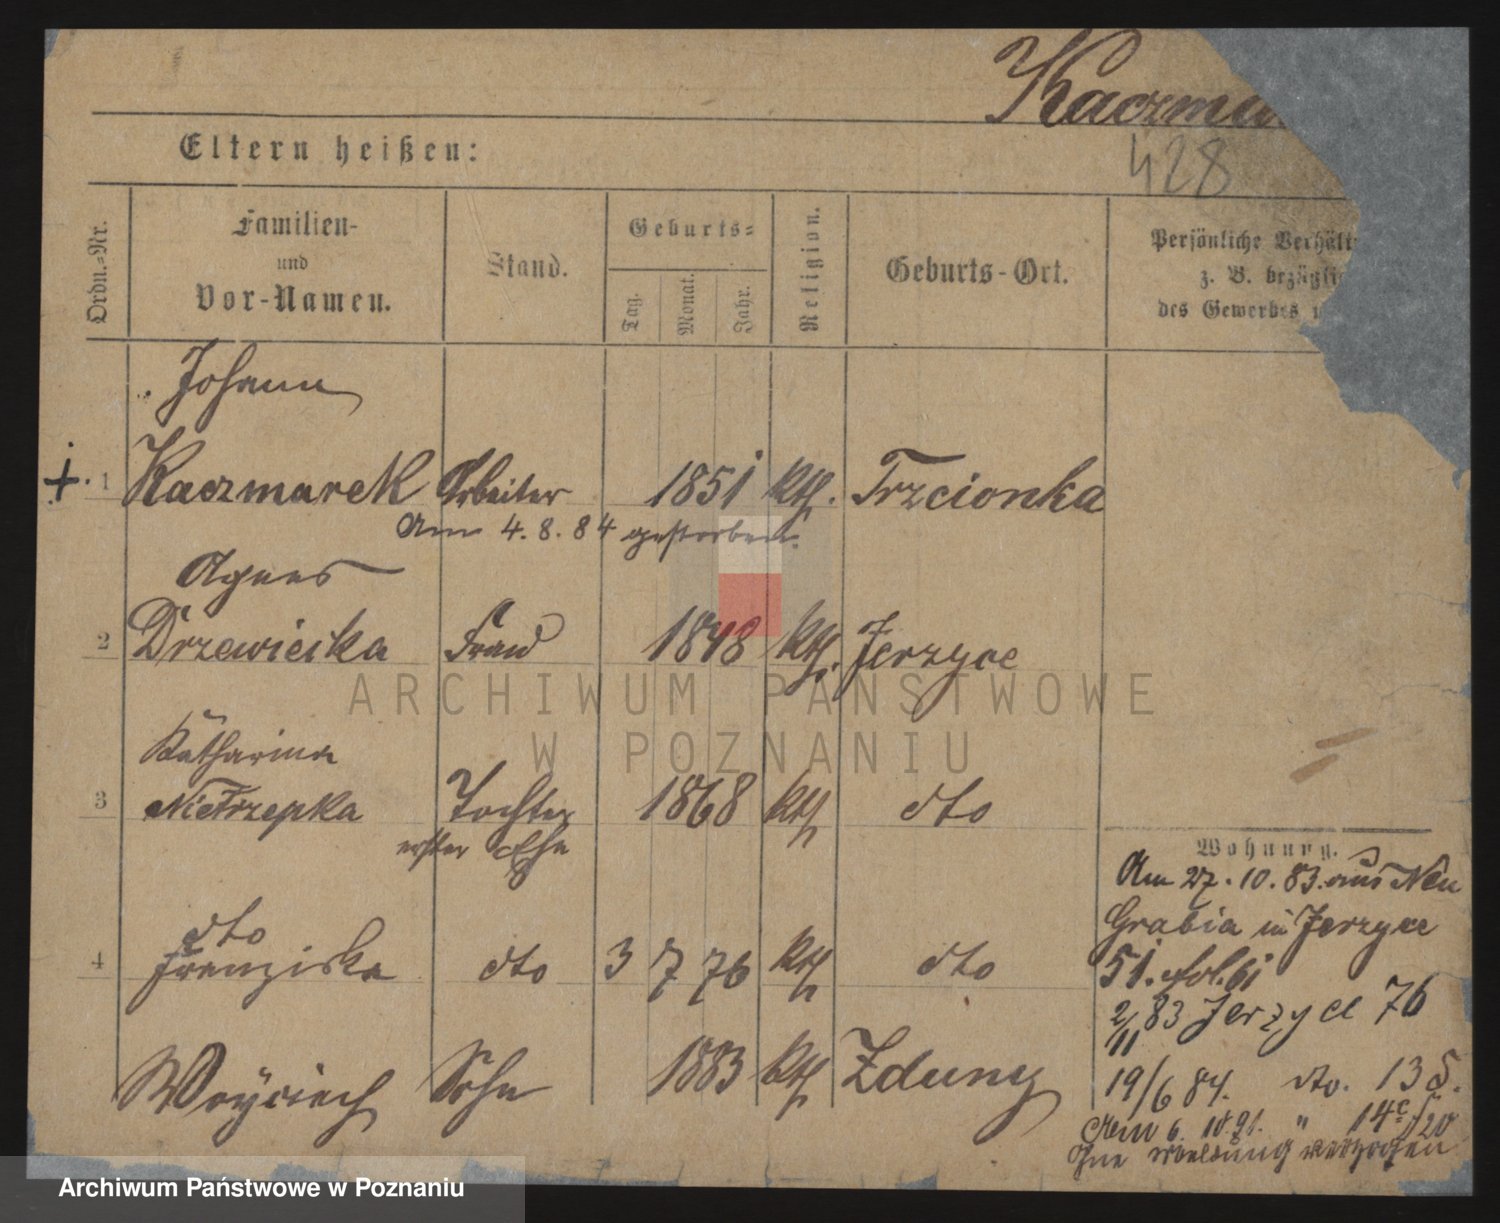 Kaczma
428
Eltern heißen:
Ordn.-Nr.
Familien-
und
Vor-Namen.
Stand.
Geburts-
Tag.
Monat.
Jahr.
Religion.
Geburts-Ort.
Persönliche Verhält
z. B. bezügli
des Gewerbes
Johann
+ 1 Kaczmarek Arbeiter 1851 kth. Trzcionka
Am 4.8.84 gestorben.
Agnes
2 Drzewiecka Frau 1848 kth. Jerzyce
ARCHIWUM PAŃSTWOWE
W POZNANIU
Katharina
3 Nietrzepka Tochter 1868 kth dto
erster Ehe
dto
4 Franziska dto 3 7 76 kth dto
Woyciech Sohn 1883 kth Zduny
Wohnung.
Am 27.10.83 aus Neu
Grabia in Jerzyce
51. fol. 61
2/11 83 Jerzyce 76
19/6 84. dto. 135.
Am 6. 10.91. " 14c
ohne Meldung verzogen
Archiwum Państwowe w Poznaniu